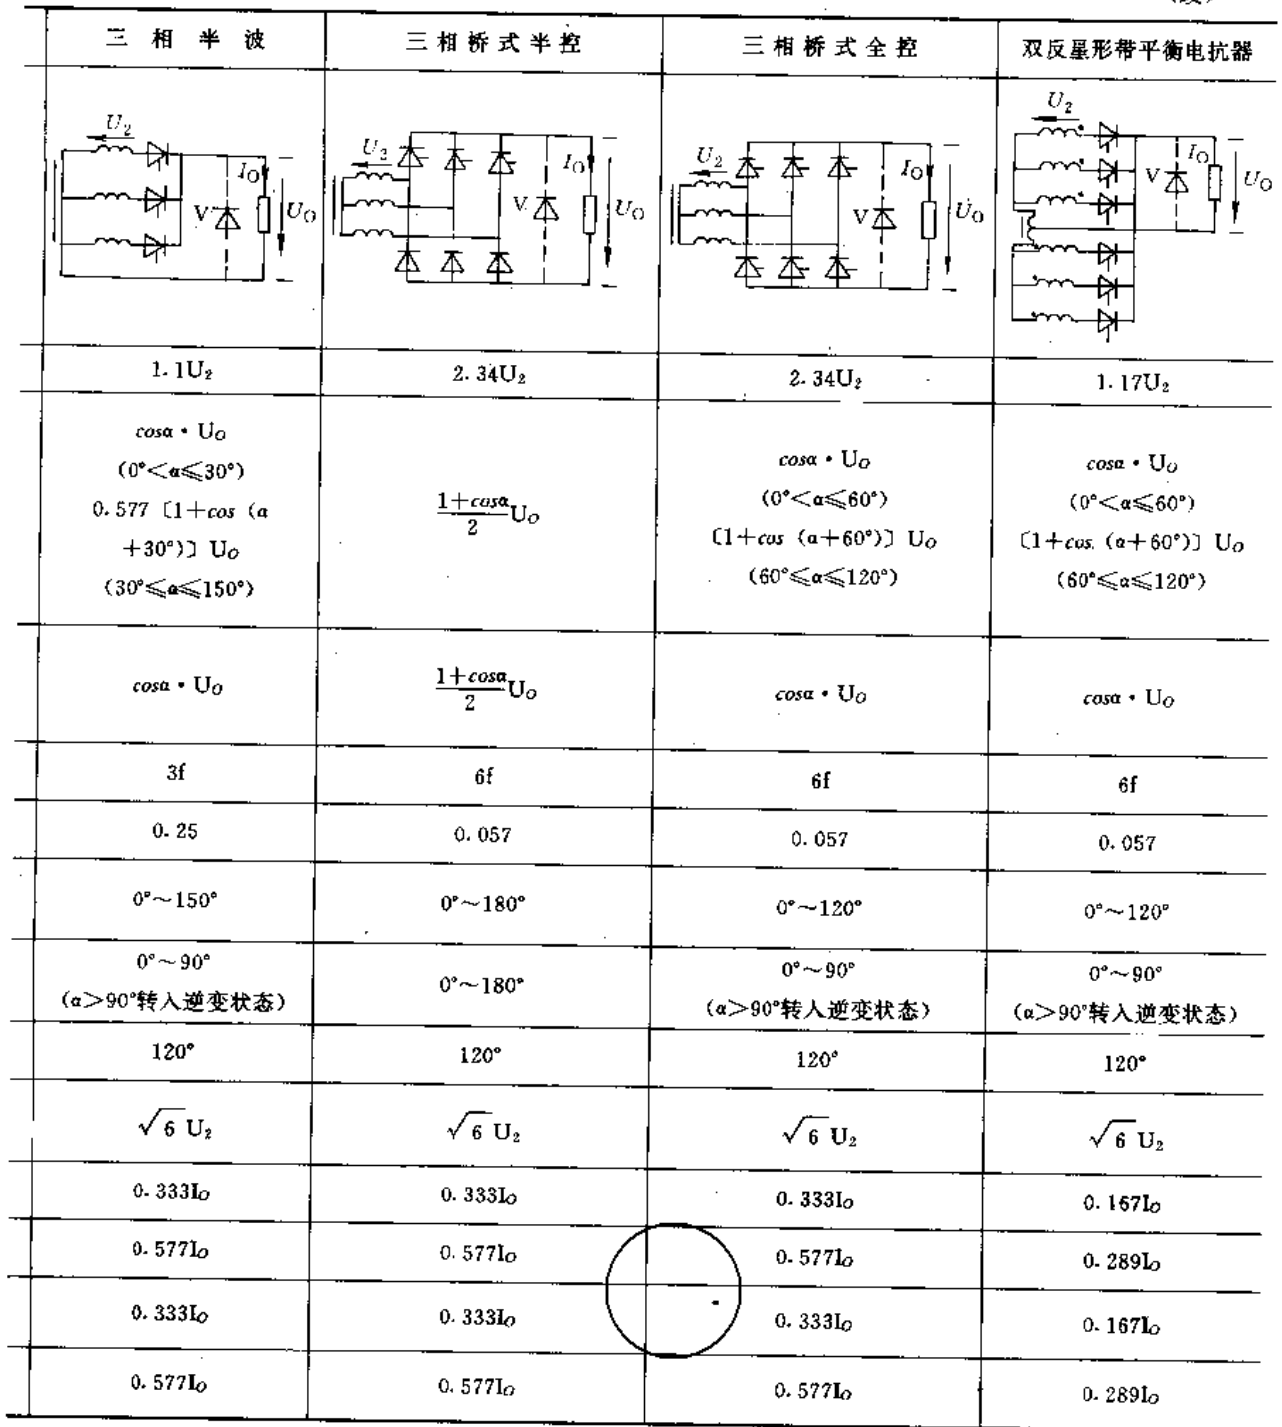 三相半波 三相桥式半控 三相桥式全控 双反星形带平衡电抗器
U₂ I_O V U_O
U₂ I_O V U_O
U₂ I_O V U_O
U₂ I_O V U_O
1.1U₂ 2.34U₂ 2.34U₂ 1.17U₂
cosα·U_O
(0°<α≤30°)
0.577〔1+cos (α
+30°)〕U_O
(30°≤α≤150°)
1+cosα/2 U_O
cosα·U_O
(0°<α≤60°)
〔1+cos (α+60°)〕U_O
(60°≤α≤120°)
cosα·U_O
(0°<α≤60°)
〔1+cos. (α+60°)〕U_O
(60°≤α≤120°)
cosα·U_O 1+cosα/2 U_O cosα·U_O cosα·U_O
3f 6f 6f 6f
0.25 0.057 0.057 0.057
0°~150° 0°~180° 0°~120° 0°~120°
0°~90°
(α>90°转入逆变状态)
0°~180°
0°~90°
(α>90°转人逆变状态)
0°~90°
(α>90°转入逆变状态)
120° 120° 120° 120°
√6 U₂ √6 U₂ √6 U₂ √6 U₂
0.333I_O 0.333I_O 0.333I_O 0.167I_O
0.577I_O 0.577I_O 0.577I_O 0.289I_O
0.333I_O 0.333I_O 0.333I_O 0.167I_O
0.577I_O 0.577I_O 0.577I_O 0.289I_O